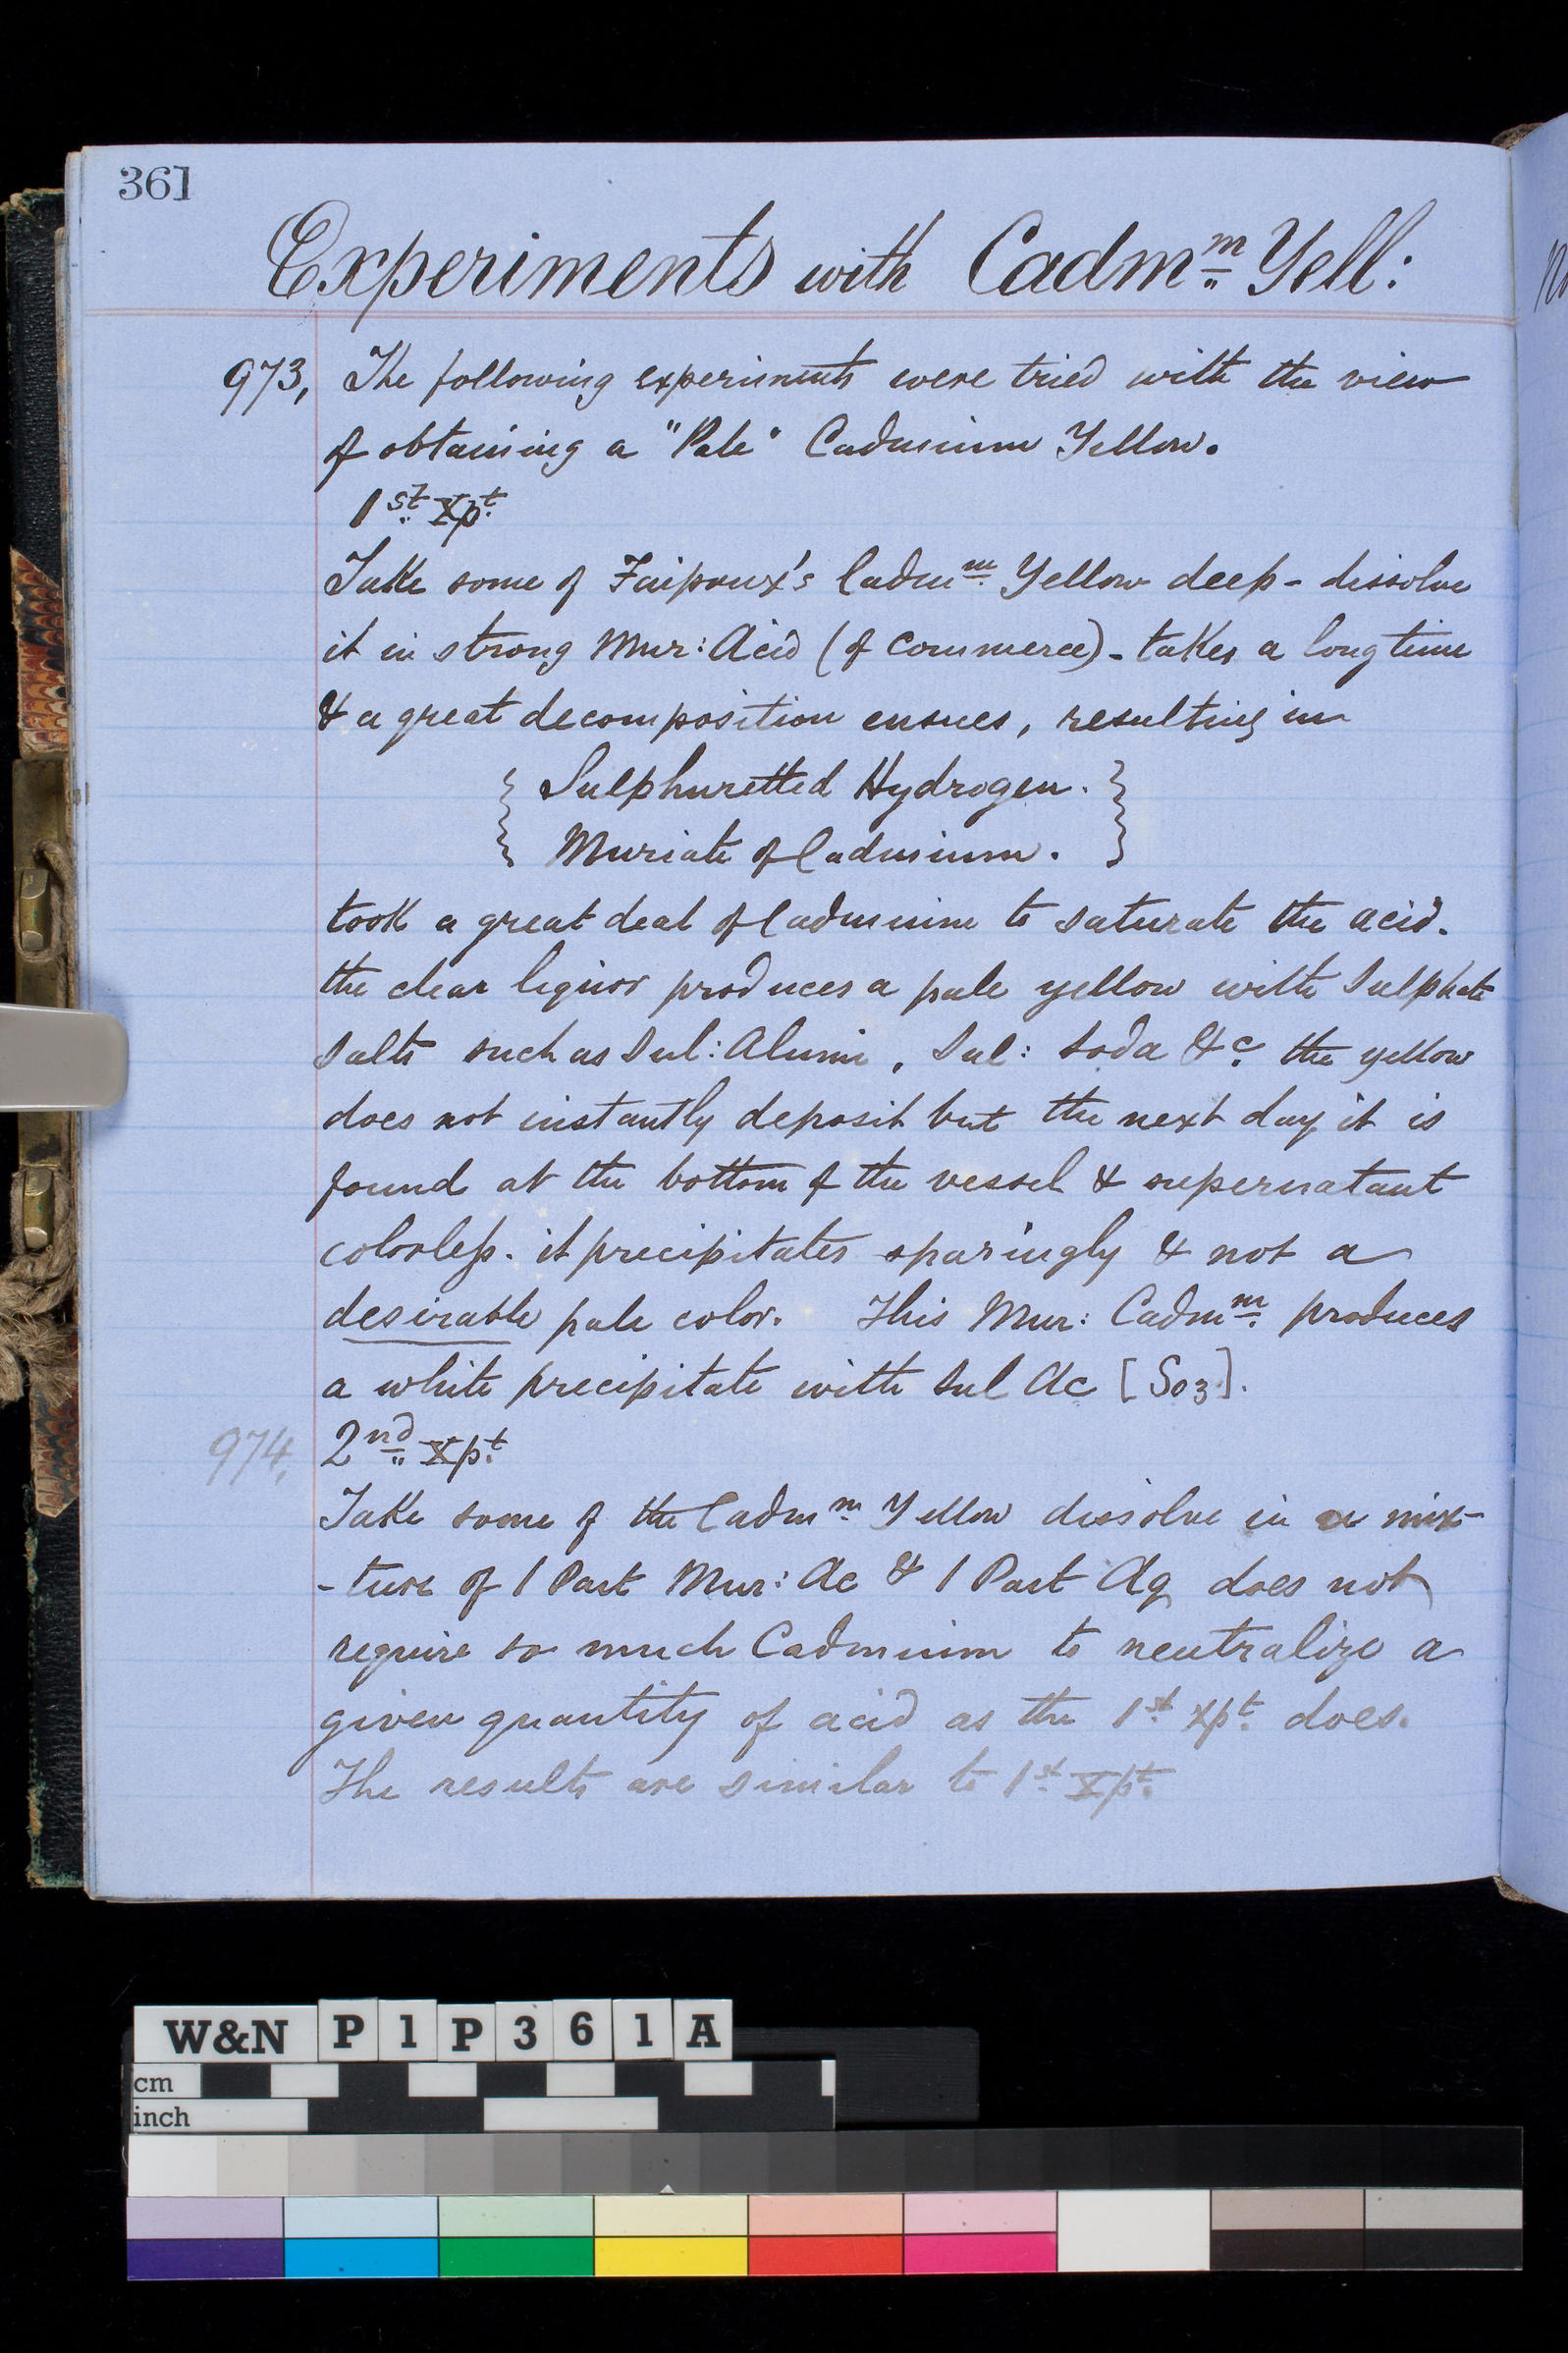 361
Experiments with Cadmm Yell:
973, The following experiments were tried with the view
of obtaining a "Pale" Cadmium Yellow.
1st Xpt
Take some of Cadmm Yellow deep - dissolve
it in strong Mur: Acid (of commerce) - takes a long time
& a great decomposition ensues, resulting in
{ Sulphuretted Hydrogen. }
{ Muriate of Cadmium. }
took a great deal of Cadmium to saturate the acid.
the clear liquor produces a pale yellow with Sulphate
Salts such as Sul: Alumi, Sul: Soda &c. the yellow
does not instantly deposit but the next day it is
found at the bottom of the vessel & supernatant
colorless. it precipitates sparingly & not a
desirable pale color. This Mur: Cadmm produces
a white precipitate with Sul Ac [So3].
974, 2nd Xpt
Take some of the Cadmm Yellow dissolve in a mix-
-ture of 1 Part Mur: Ac & 1 Part Aq does not
require so much Cadmium to neutralize a
given quantity of acid as the 1st xpt. does.
The results are similar to 1st Xpt.
W&N P1P361A
cm
inch